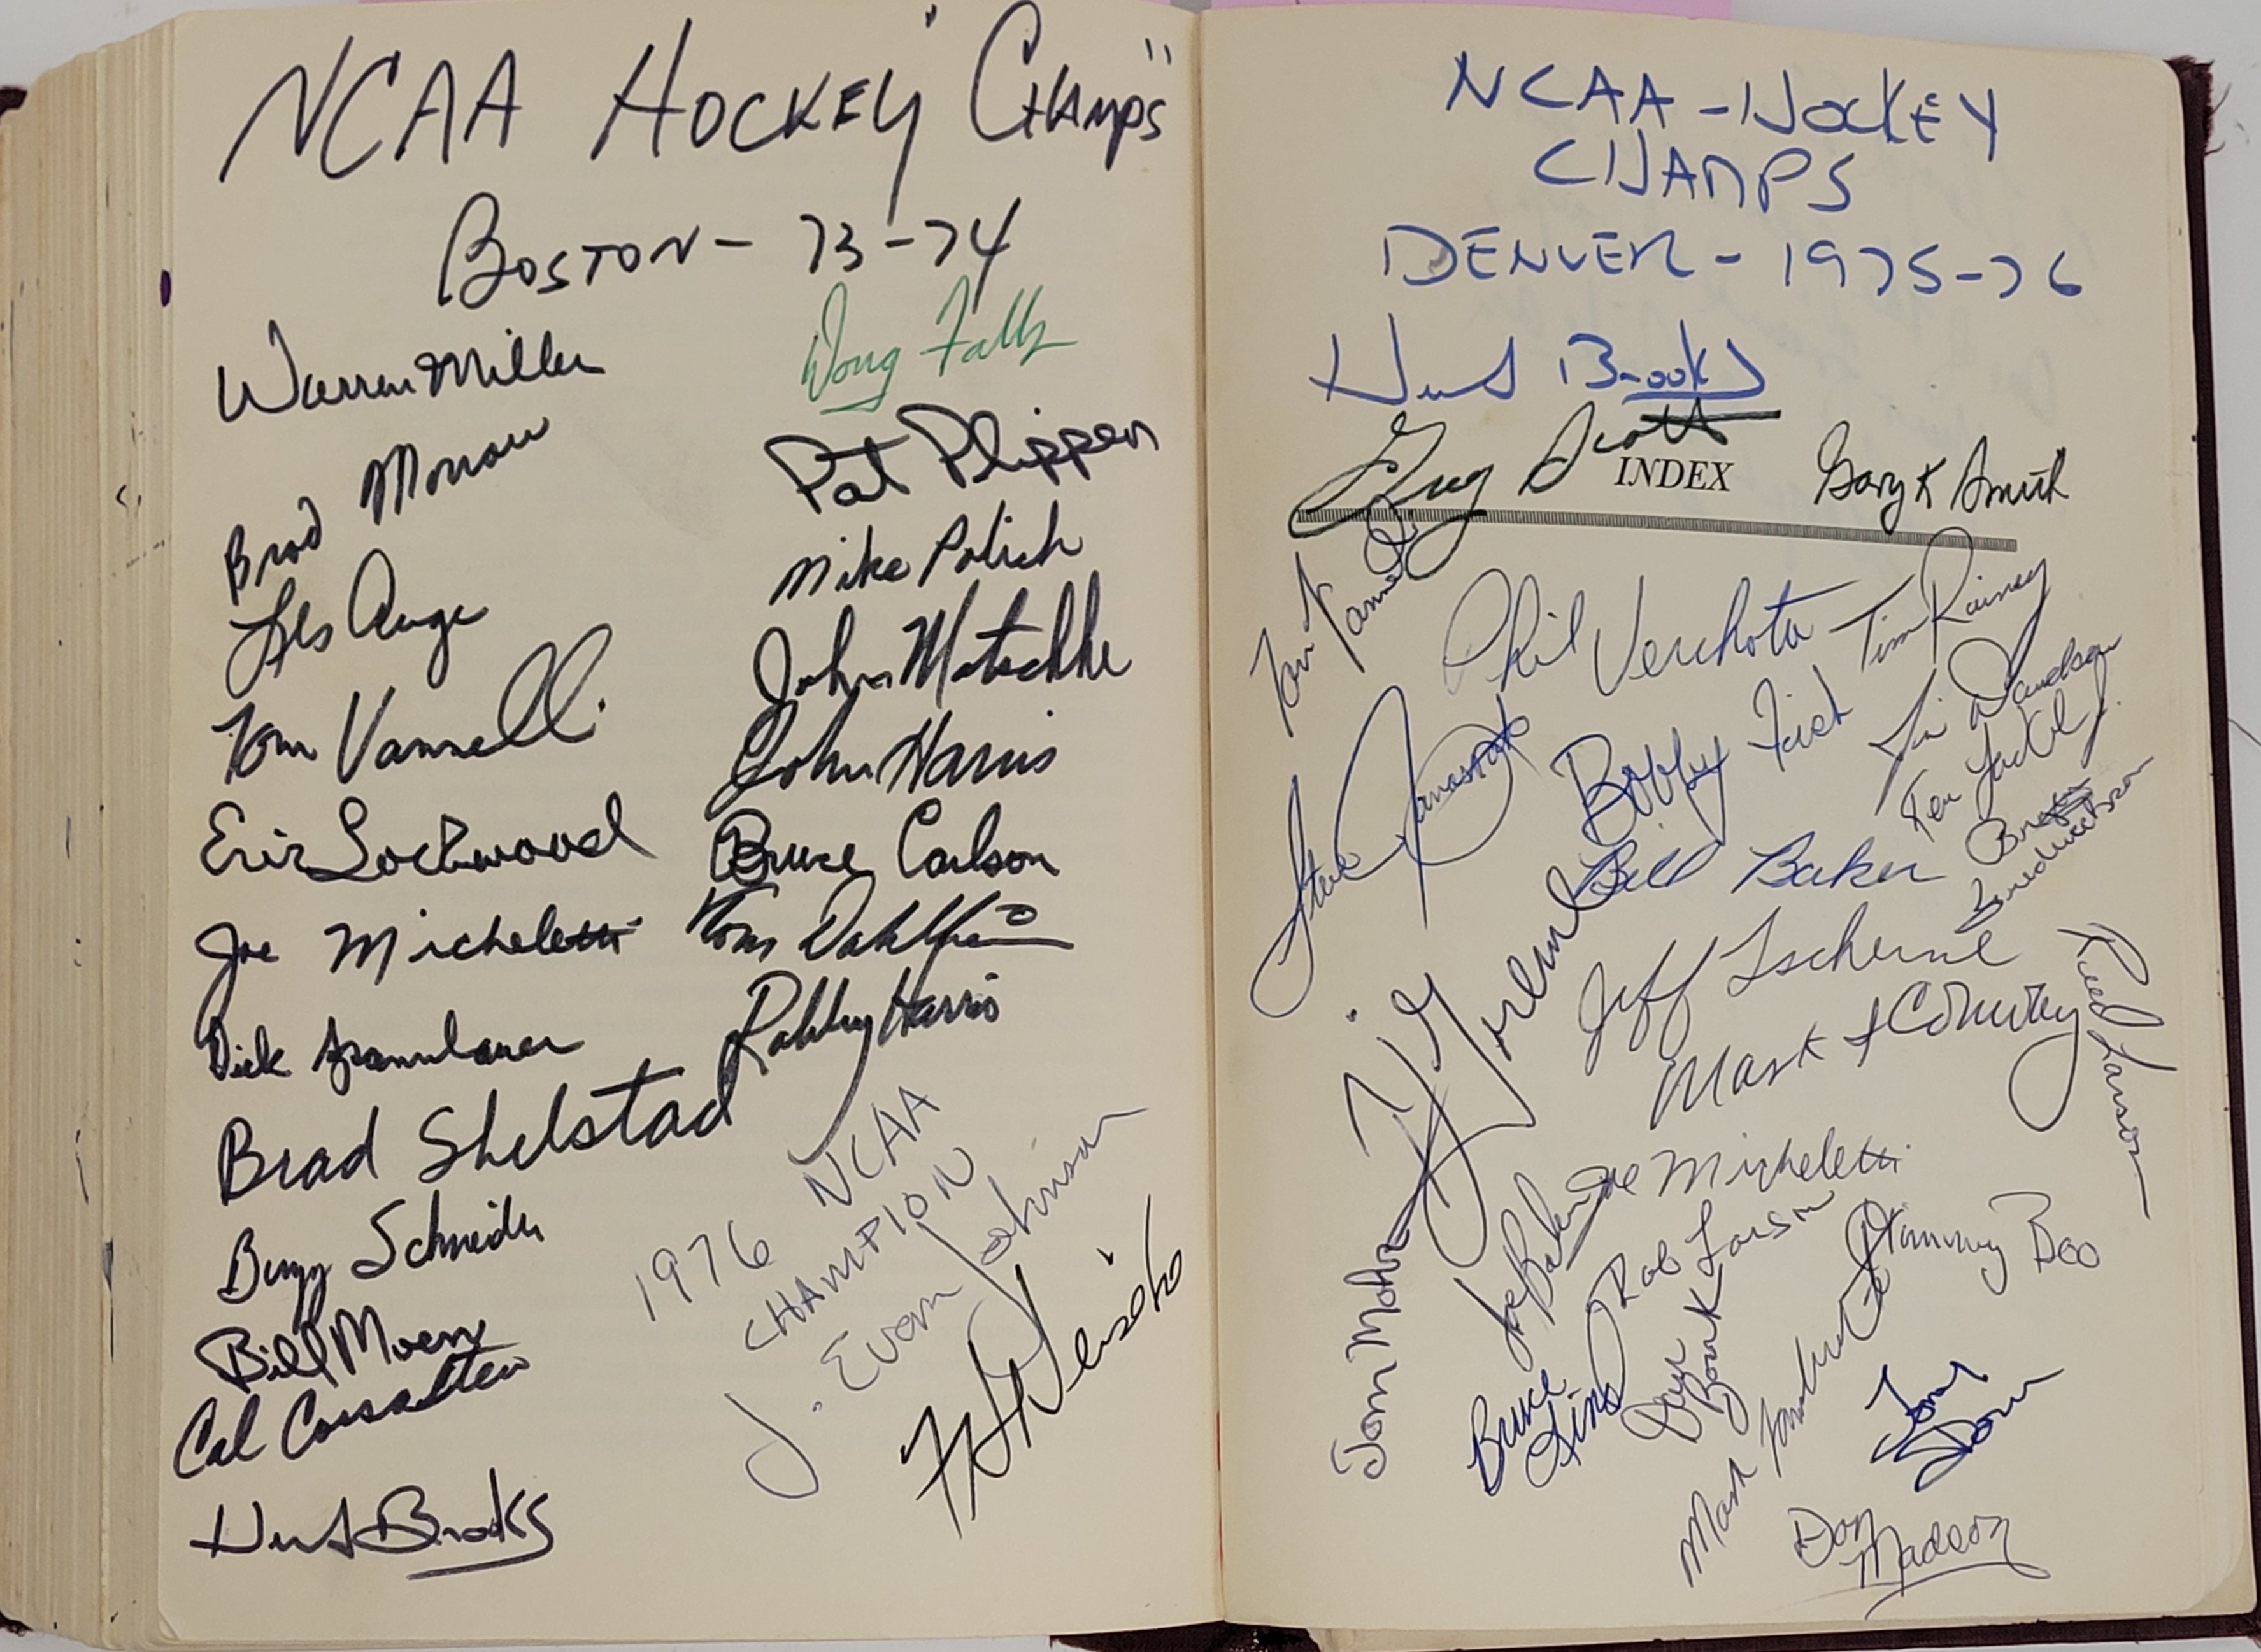 NCAA HOCKEY "CHAMPS"
BOSTON - 73-74
Warren Miller
Brad Morrow
Les Auge
Tom Vannelli
Eric Lockwood
Joe Micheletti
Dick Spannbauer
Brad Shelstad
Buzz Schneider
Bill Moen
Cal Cossalter
Herb Brooks
Doug Falls
Pat Phippen
Mike Polich
John Matschke
John Harris
Bruce Carlson
Tom Dahlheim
Robby Harris
1976 NCAA
CHAMPION
J. Evan Johnson
NCAA - HOCKEY
CHAMPS
DENVER - 1975-76
Herb Brooks
Greg Scott
INDEX
Gary K Smith
Tom Vannelli
Phil Verchota
Tim Rainey
Steve Janaszak
Bobby Fish
Jim
Bill Baker
Jeff Tscherne
Mark Conway
Reed Larson
Tom Mohr
Joe Baker
Joe Micheletti
Rob Larson
Jimmy Boo
Bruce Lind
Mark Lambert
Tony Dorn
Don
Madson